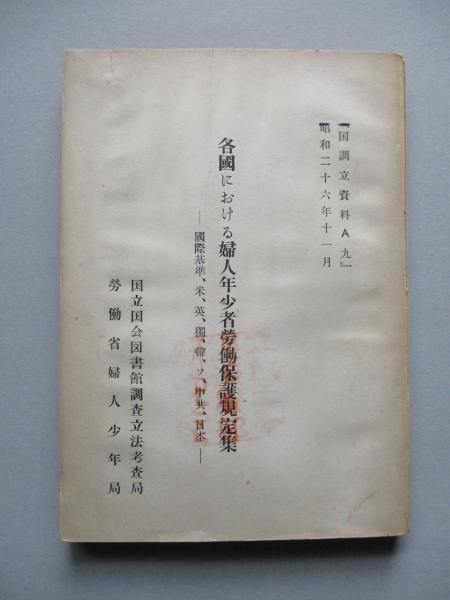 『国調立資料A九』
昭和二十六年十一月
各國における婦人年少者勞働保護規定集
―國際基準、米、英、獨、韓、ソ、中共、日本―
国立国会図書館調査立法考査局
勞働省婦人少年局